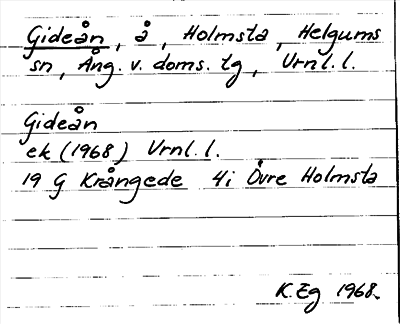 Gideån, å, Holmsta, Helgums
sn, Ång. v. doms. tg, Vrnl. l.
Gideån
ek (1968) Vrnl. l.
19 G Krångede 4i Övre Holmsta
K. Eg 1968.